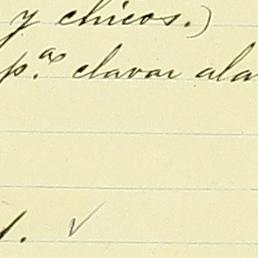 y chicos.)
p.ª clavar ala
1. ✓